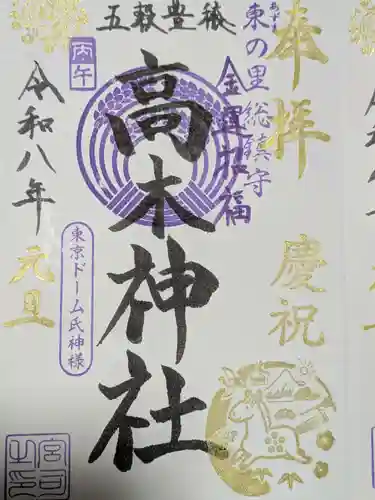 奉拝
慶祝
あずま
東の里総鎮守
金運招福
五穀豊穣
高木神社
丙午
令和八年
元旦
東京ドーム氏神様
宮司之印